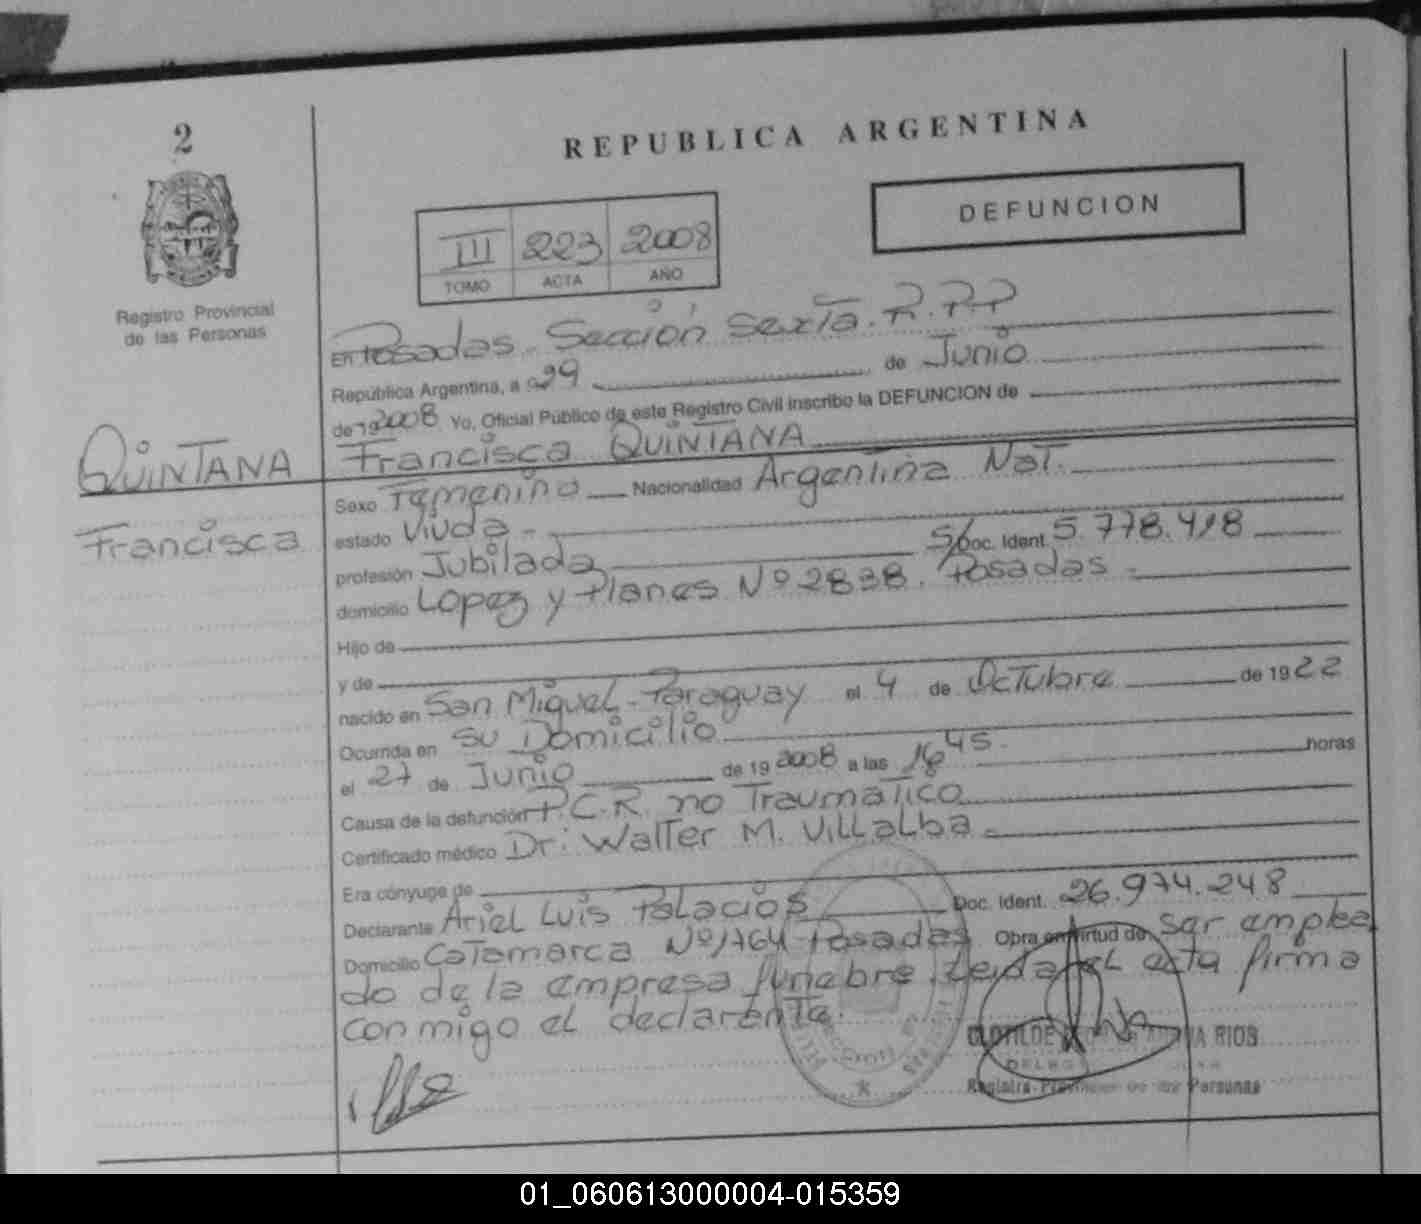 2
REPUBLICA ARGENTINA
DEFUNCION
III 223 2008
TOMO ACTA AÑO
Registro Provincial
de las Personas
En Posadas Sección Sexta. R.P.P
República Argentina, a 29 de Junio
de 19 2008 Yo, Oficial Público de este Registro Civil inscribo la DEFUNCION de
QUINTANA Francisca QUINTANA
Francisca
Sexo Femenino Nacionalidad Argentina Nat.
estado Viuda
profesión Jubilada S/Doc. Ident. 5.778.418
domicilio Lopez y Planes Nº 2838. Posadas
Hijo de
y de
nacido en San Miguel-Paraguay el 4 de Octubre de 1922
Ocurrida en su Domicilio
el 27 de Junio de 19 2008 a las 16 45 horas
Causa de la defunción P.C.R. no Traumático
Certificado médico Dr: Walter M. Villalba
Era cónyuge de
Declarante Ariel Luis Palacios Doc. Ident. 26.974.248
Domicilio Catamarca Nº 1764 Posadas Obra en virtud de ser emplea
do de la empresa funebre. Leida el acta firma
conmigo el declarante.
CLOTILDE RIOS
Registro Provincial de las Personas
01_060613000004-015359